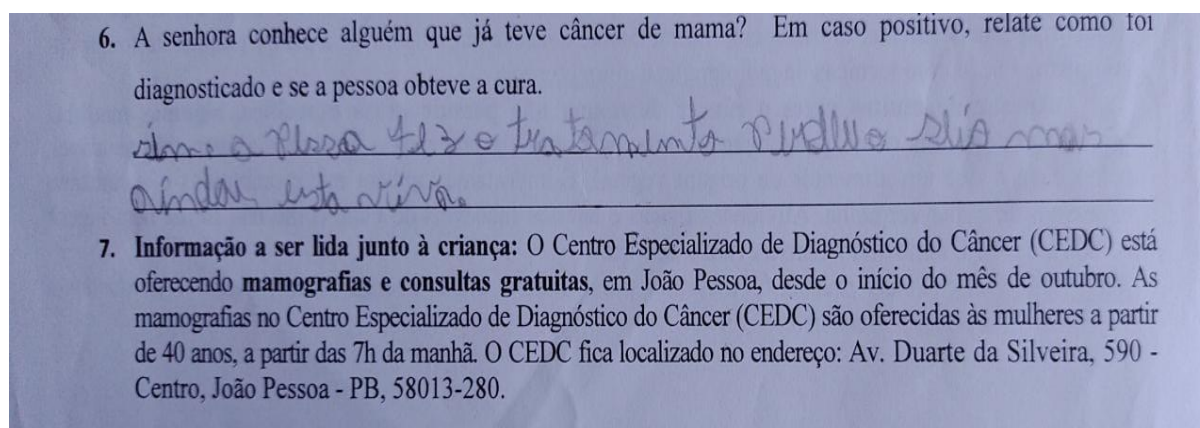 6. A senhora conhece alguém que já teve câncer de mama? Em caso positivo, relate como foi
diagnosticado e se a pessoa obteve a cura.
sim a pessoa fez o tratamento perdeu o seio mas
ainda esta viva.
7. Informação a ser lida junto à criança: O Centro Especializado de Diagnóstico do Câncer (CEDC) está
oferecendo mamografias e consultas gratuitas, em João Pessoa, desde o início do mês de outubro. As
mamografias no Centro Especializado de Diagnóstico do Câncer (CEDC) são oferecidas às mulheres a partir
de 40 anos, a partir das 7h da manhã. O CEDC fica localizado no endereço: Av. Duarte da Silveira, 590 -
Centro, João Pessoa - PB, 58013-280.